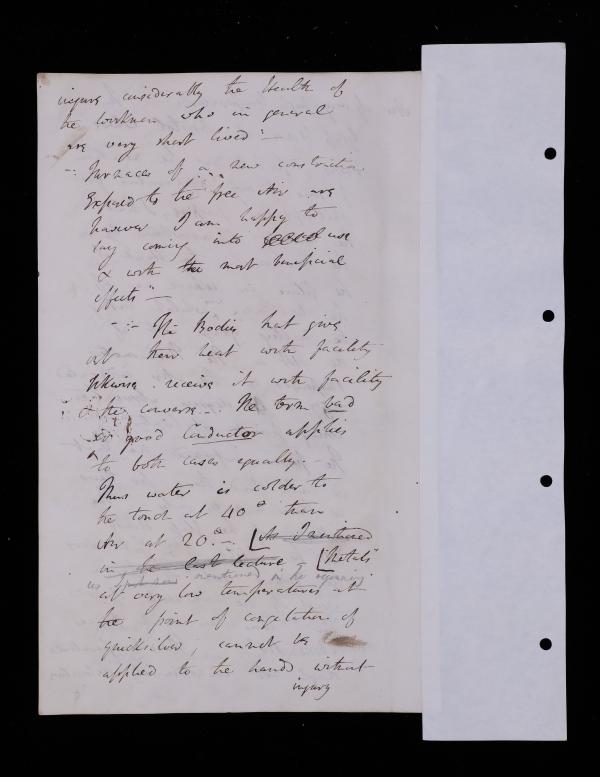 injure considerably the Health of
the workmen who in general
are very short lived" —
-: Furnaces of a new construction
Exposed to the free Air are
however I am happy to
say coming into use
& with the most beneficial
effects" —
-:- The Bodies that give
out their heat with facility
likewise receive it with facility
& the converse - The term bad
or good Conductor applies
to both cases equally. -
Thus water is colder to
the touch at 40° than
Air at 20°. - [As I mentioned
in the last lecture - ["Metals"
as mentioned in the
at very low temperatures at
the point of congelation of
quicksilver, cannot be
applied to the hand without
injury